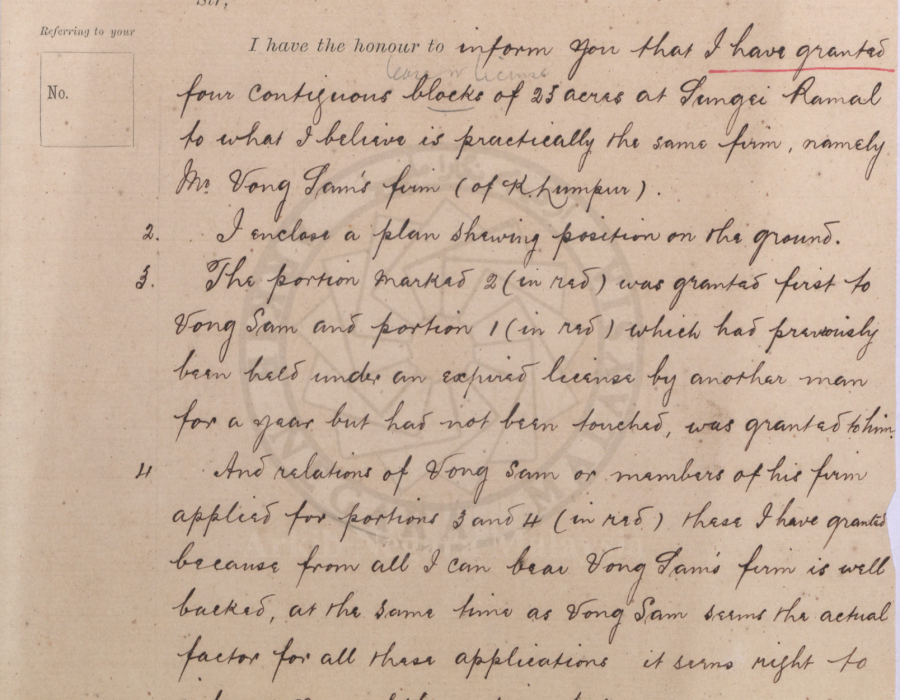 Sir,
Referring to your
No.
I have the honour to inform you that I have granted
lease or license
four contiguous blocks of 25 acres at Sungei Ramal
to what I believe is practically the same firm, namely
Mr Vong Sam's firm (of K. Lumpur).
2. I enclose a plan shewing position on the ground.
3. The portion marked 2 (in red) was granted first to
Vong Sam and portion 1 (in red) which had previously
been held under an expired license by another man
for a year but had not been touched, was granted to him.
4 And relations of Vong Sam or members of his firm
applied for portions 3 and 4 (in red) these I have granted
because from all I can hear Vong Sam's firm is well
backed, at the same time as Vong Sam seems the actual
factor for all these applications it seems right to